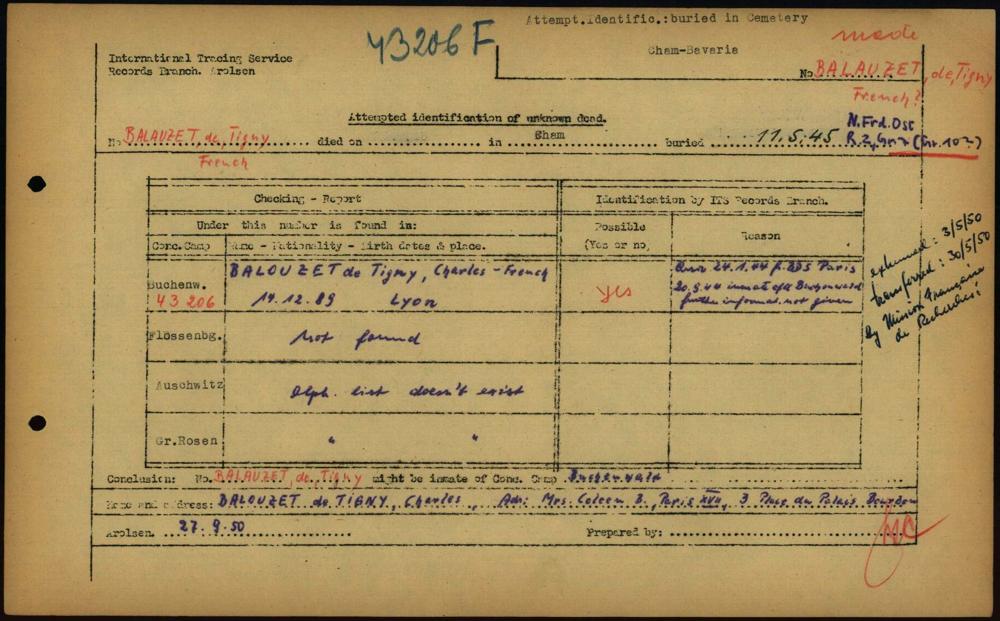 Attempt.Identific.:buried in Cemetery
43206 F
made
Cham-Bavaria
International Tracing Service
Records Branch. Arolsen
No BALAUZET, de, Tigny
French?
Attempted identification of unknown dead.
N.Frd.Ost
No BALAUZET, de, Tigny died on in Cham buried 11.5.45 R.2, (Gr. 102)
French
Checking - Report
Identification by ITS Records Branch.
Under this number is found in:
Possible
(Yes or no)
Reason
Conc.Camp
Name - Nationality - Birth dates & place.
BALOUZET de Tigny, Charles - French
24.1.44 f. BDS Paris
Buchenw.
43 206
14.12.89 Lyon
yes
20.9.44 inmate of Buchenwald
further informat. not given
exhumed : 3/5/50
transferred : 30/5/50
by Mission Française
de Recherches
Flossenbg.
Not found
Auschwitz
Alph. list doesn't exist
Gr.Rosen
" "
Conclusion: No. BALAUZET, de, Tigny might be inmate of Conc. Camp Buchenwald
Name and address: BALOUZET de TIGNY, Charles, Adr: Mrs. Coleen B., Paris XVII, 3 Place du Palais Bourbon
Arolsen. 27.9.50
Prepared by: